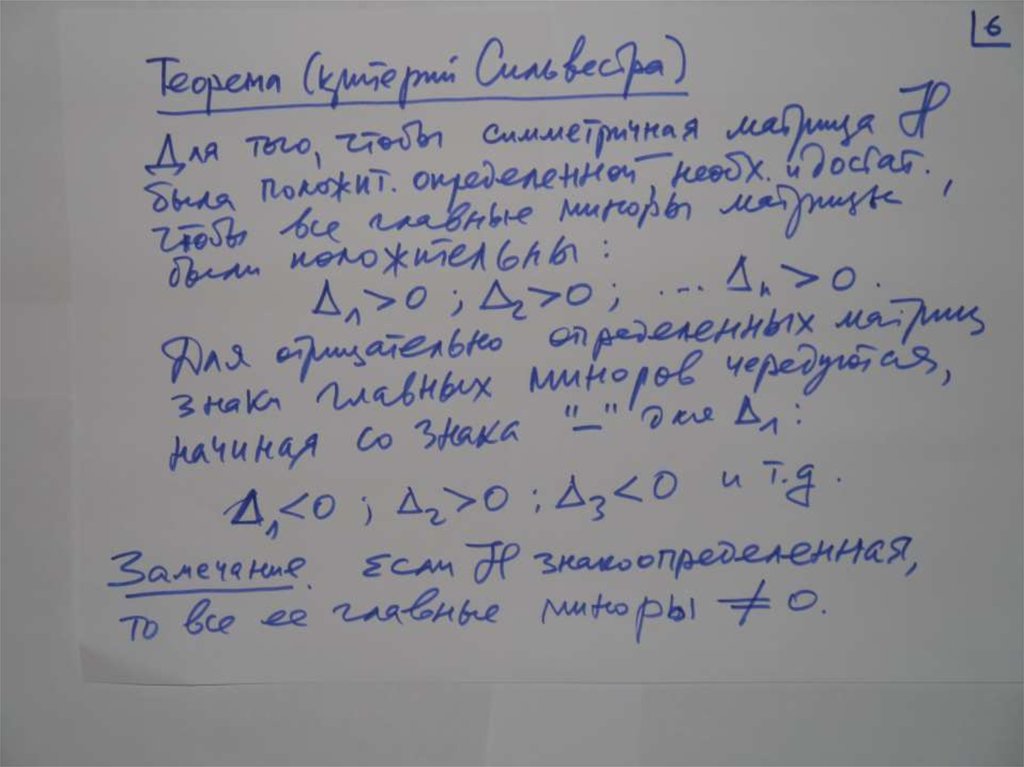 6
Теорема (критерий Сильвестра)
Для того, чтобы симметричная матрица H
была положит. определенной, необх. и достат.,
чтобы все главные миноры матрицы
были положительны:
Δ₁>0 ; Δ₂>0 ; ... Δₙ>0.
Для отрицательно определенных матриц
знаки главных миноров чередуются,
начиная со знака "–" для Δ₁:
Δ₁<0 ; Δ₂>0 ; Δ₃<0 и т.д.
Замечание. Если H знакоопределенная,
то все ее главные миноры ≠ 0.